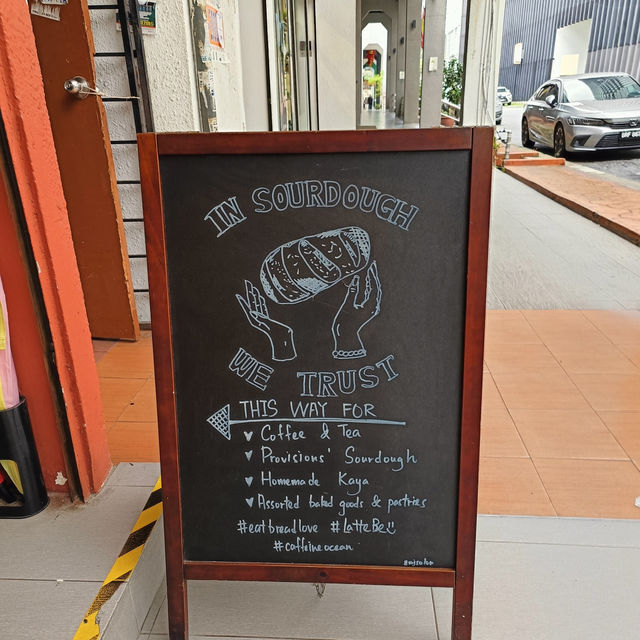 IN SOURDOUGH
WE TRUST
THIS WAY FOR
Coffee & Tea
Provisions' Sourdough
Homemade Kaya
Assorted baked goods & pastries
#eatbreadlove #LatteBe
#caffeineocean